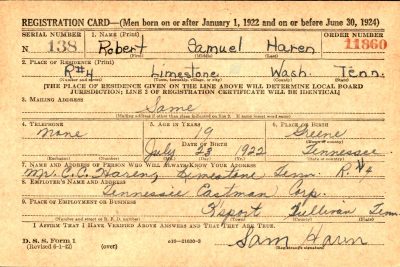 REGISTRATION CARD—(Men born on or after January 1, 1922 and on or before June 30, 1924)
SERIAL NUMBER 1. NAME (Print) ORDER NUMBER
N 138 Robert Samuel Haren 11860
(First) (Middle) (Last)
2. PLACE OF RESIDENCE (Print)
R#4 Limestone Wash. Tenn.
(Number and street) (Town, township, village, or city) (County) (State)
[THE PLACE OF RESIDENCE GIVEN ON THE LINE ABOVE WILL DETERMINE LOCAL BOARD
JURISDICTION; LINE 2 OF REGISTRATION CERTIFICATE WILL BE IDENTICAL]
3. MAILING ADDRESS
Same
[Mailing address if other than place indicated on line 2. If same insert word same]
4. TELEPHONE 5. AGE IN YEARS 6. PLACE OF BIRTH
None 19 Greene
DATE OF BIRTH (Town or county)
July 23 1922 Tennessee
(Exchange) (Number) (Mo.) (Day) (Yr.) (State or country)
7. NAME AND ADDRESS OF PERSON WHO WILL ALWAYS KNOW YOUR ADDRESS
Mr. C. C. Haren, Limestone Tenn. R#4
8. EMPLOYER'S NAME AND ADDRESS
Tennessee Eastman Corp.
9. PLACE OF EMPLOYMENT OR BUSINESS
K'sport Sullivan Tenn.
(Number and street or R. F. D. number) (Town) (County) (State)
I AFFIRM THAT I HAVE VERIFIED ABOVE ANSWERS AND THAT THEY ARE TRUE.
D. S. S. Form 1
(Revised 6-1-42) (over) Sam Haren
(Registrant's signature)